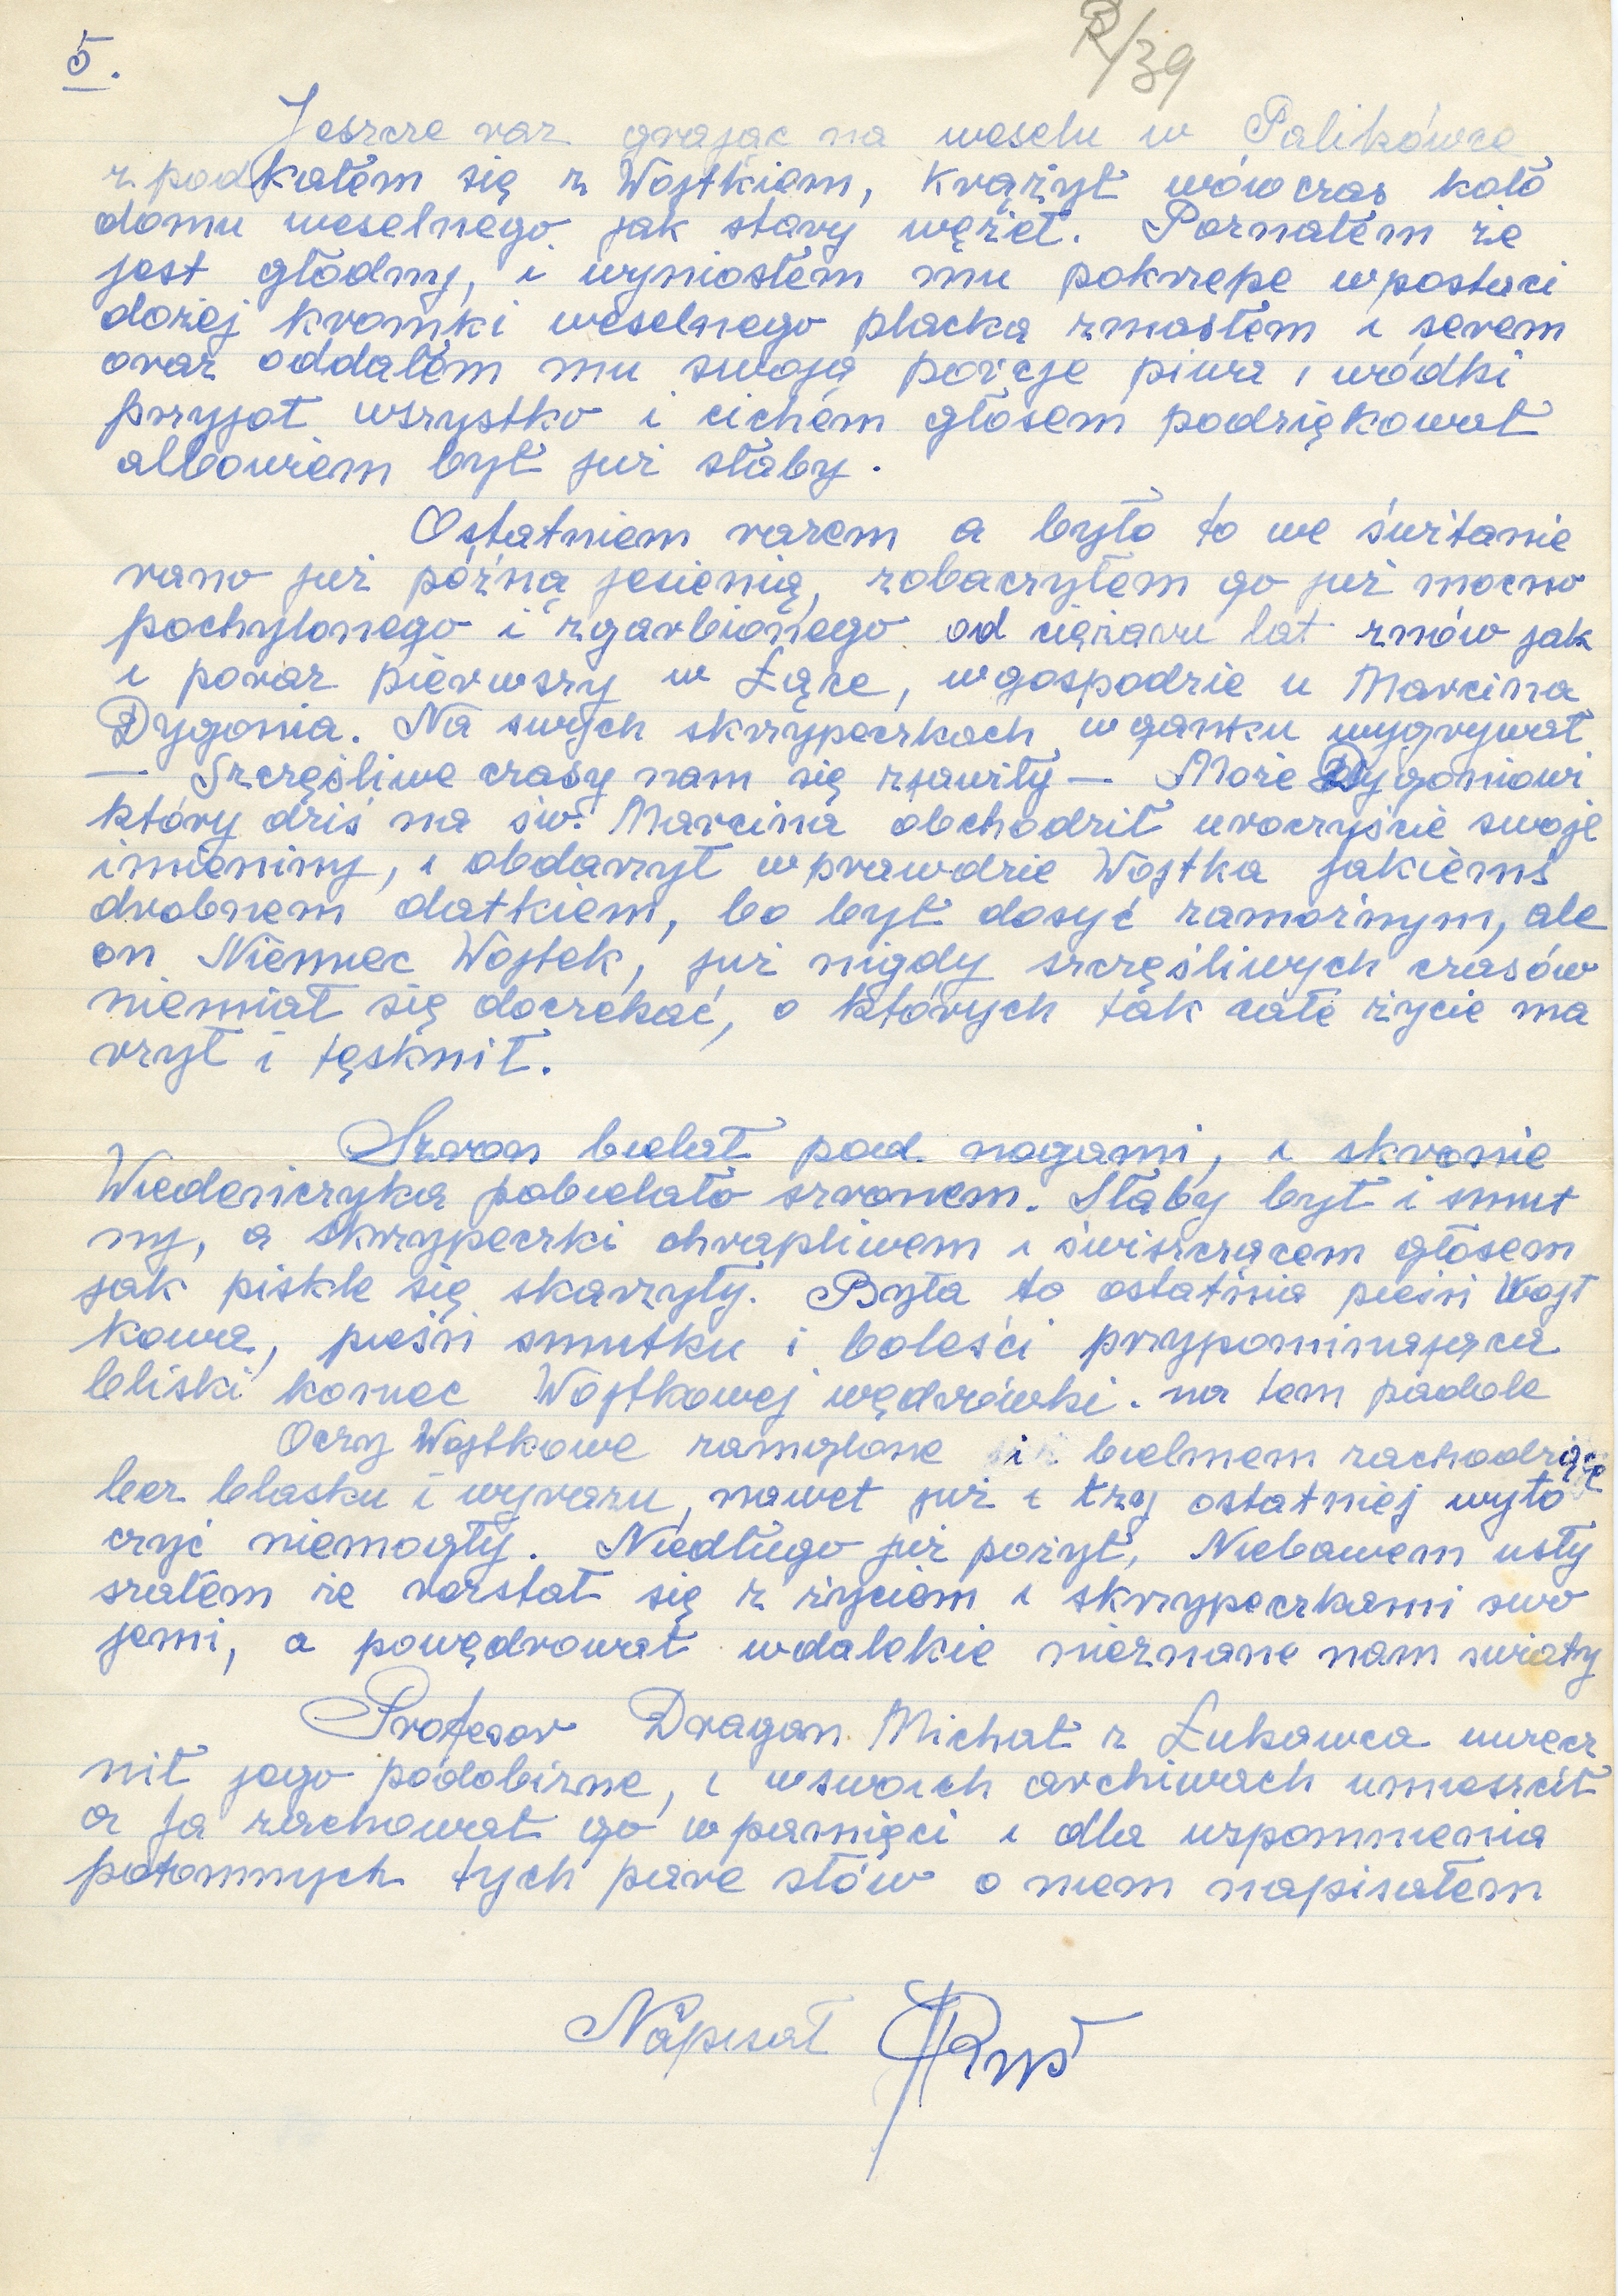 5.
R/39
Jeszcze raz grając na weselu w Palikówce
z podkałem się z Wojtkiem, Krążył wówczas koło
domu weselnego jak stary wężeł. Poznałem że
jest głodny, i wyniosłem mu pokrzepe wpostaci
dożej kromki weselnego placka zmasłem i serem
oraz oddałem mu swoją porcje piwa i wódki
przyjoł wszystko i cichém głosem podziękował
albowiem był już słaby.
Ostatniem razem a było to we świtanie
rano już późną jesienią, zobaczyłem go już mocno
pochylonego i zgarbionego od ciężaru lat znów jak
i poraz pierwszy w Łące, wgospodzie u Marcina
Dygonia. Na swych skrzypeczkach wganku wygrywał
— Szczęśliwe czasy nam się zjawiły — Może Dygoniowi
który dziś na św. Marcina obchodził uroczyście swoje
imieniny, i obdarzył wprawdzie Wojtka jakiémś
drobnem datkiem, bo był dosyć zamożnym, ale
on Niemiec Wojtek, już nigdy szczęśliwych czasów
niemiał się doczekać, o których tak całe życie ma
rzył i tęsknił.
Szron bielał pod nogami, i skronie
Wiedeńczyka pobielało szronem. Słaby był i smut
ny, a skrzypeczki chrapliwem i świszczącem głosem
jak piskle się skarzyły. Była to ostatnia pieśń Wojt
kowa, pieśń smutku i boleści przypominająca
bliski koniec Wojtkowej wędrówki. na tem padole
Oczy Wojtkowe zamglone i bielmem zachodzące
bez blasku i wyrazu, nawet już i łzy ostatniej wyto
czyć niemogły. Niedługo już pożył, Niebawem usły
szałem że rozstał się z życiem i skrzypeczkami swo
jemi, a powędrował wdalekie nieznane nam swiaty
Profesor Dragan Michał z Łukawca uwiecz
nił jego podobizne, i wswoich archiwach umieścił
a ja zachował go wpamięci i dla wspomnienia
potomnych tych pare słów o niem napisałem
Napisał Ryś